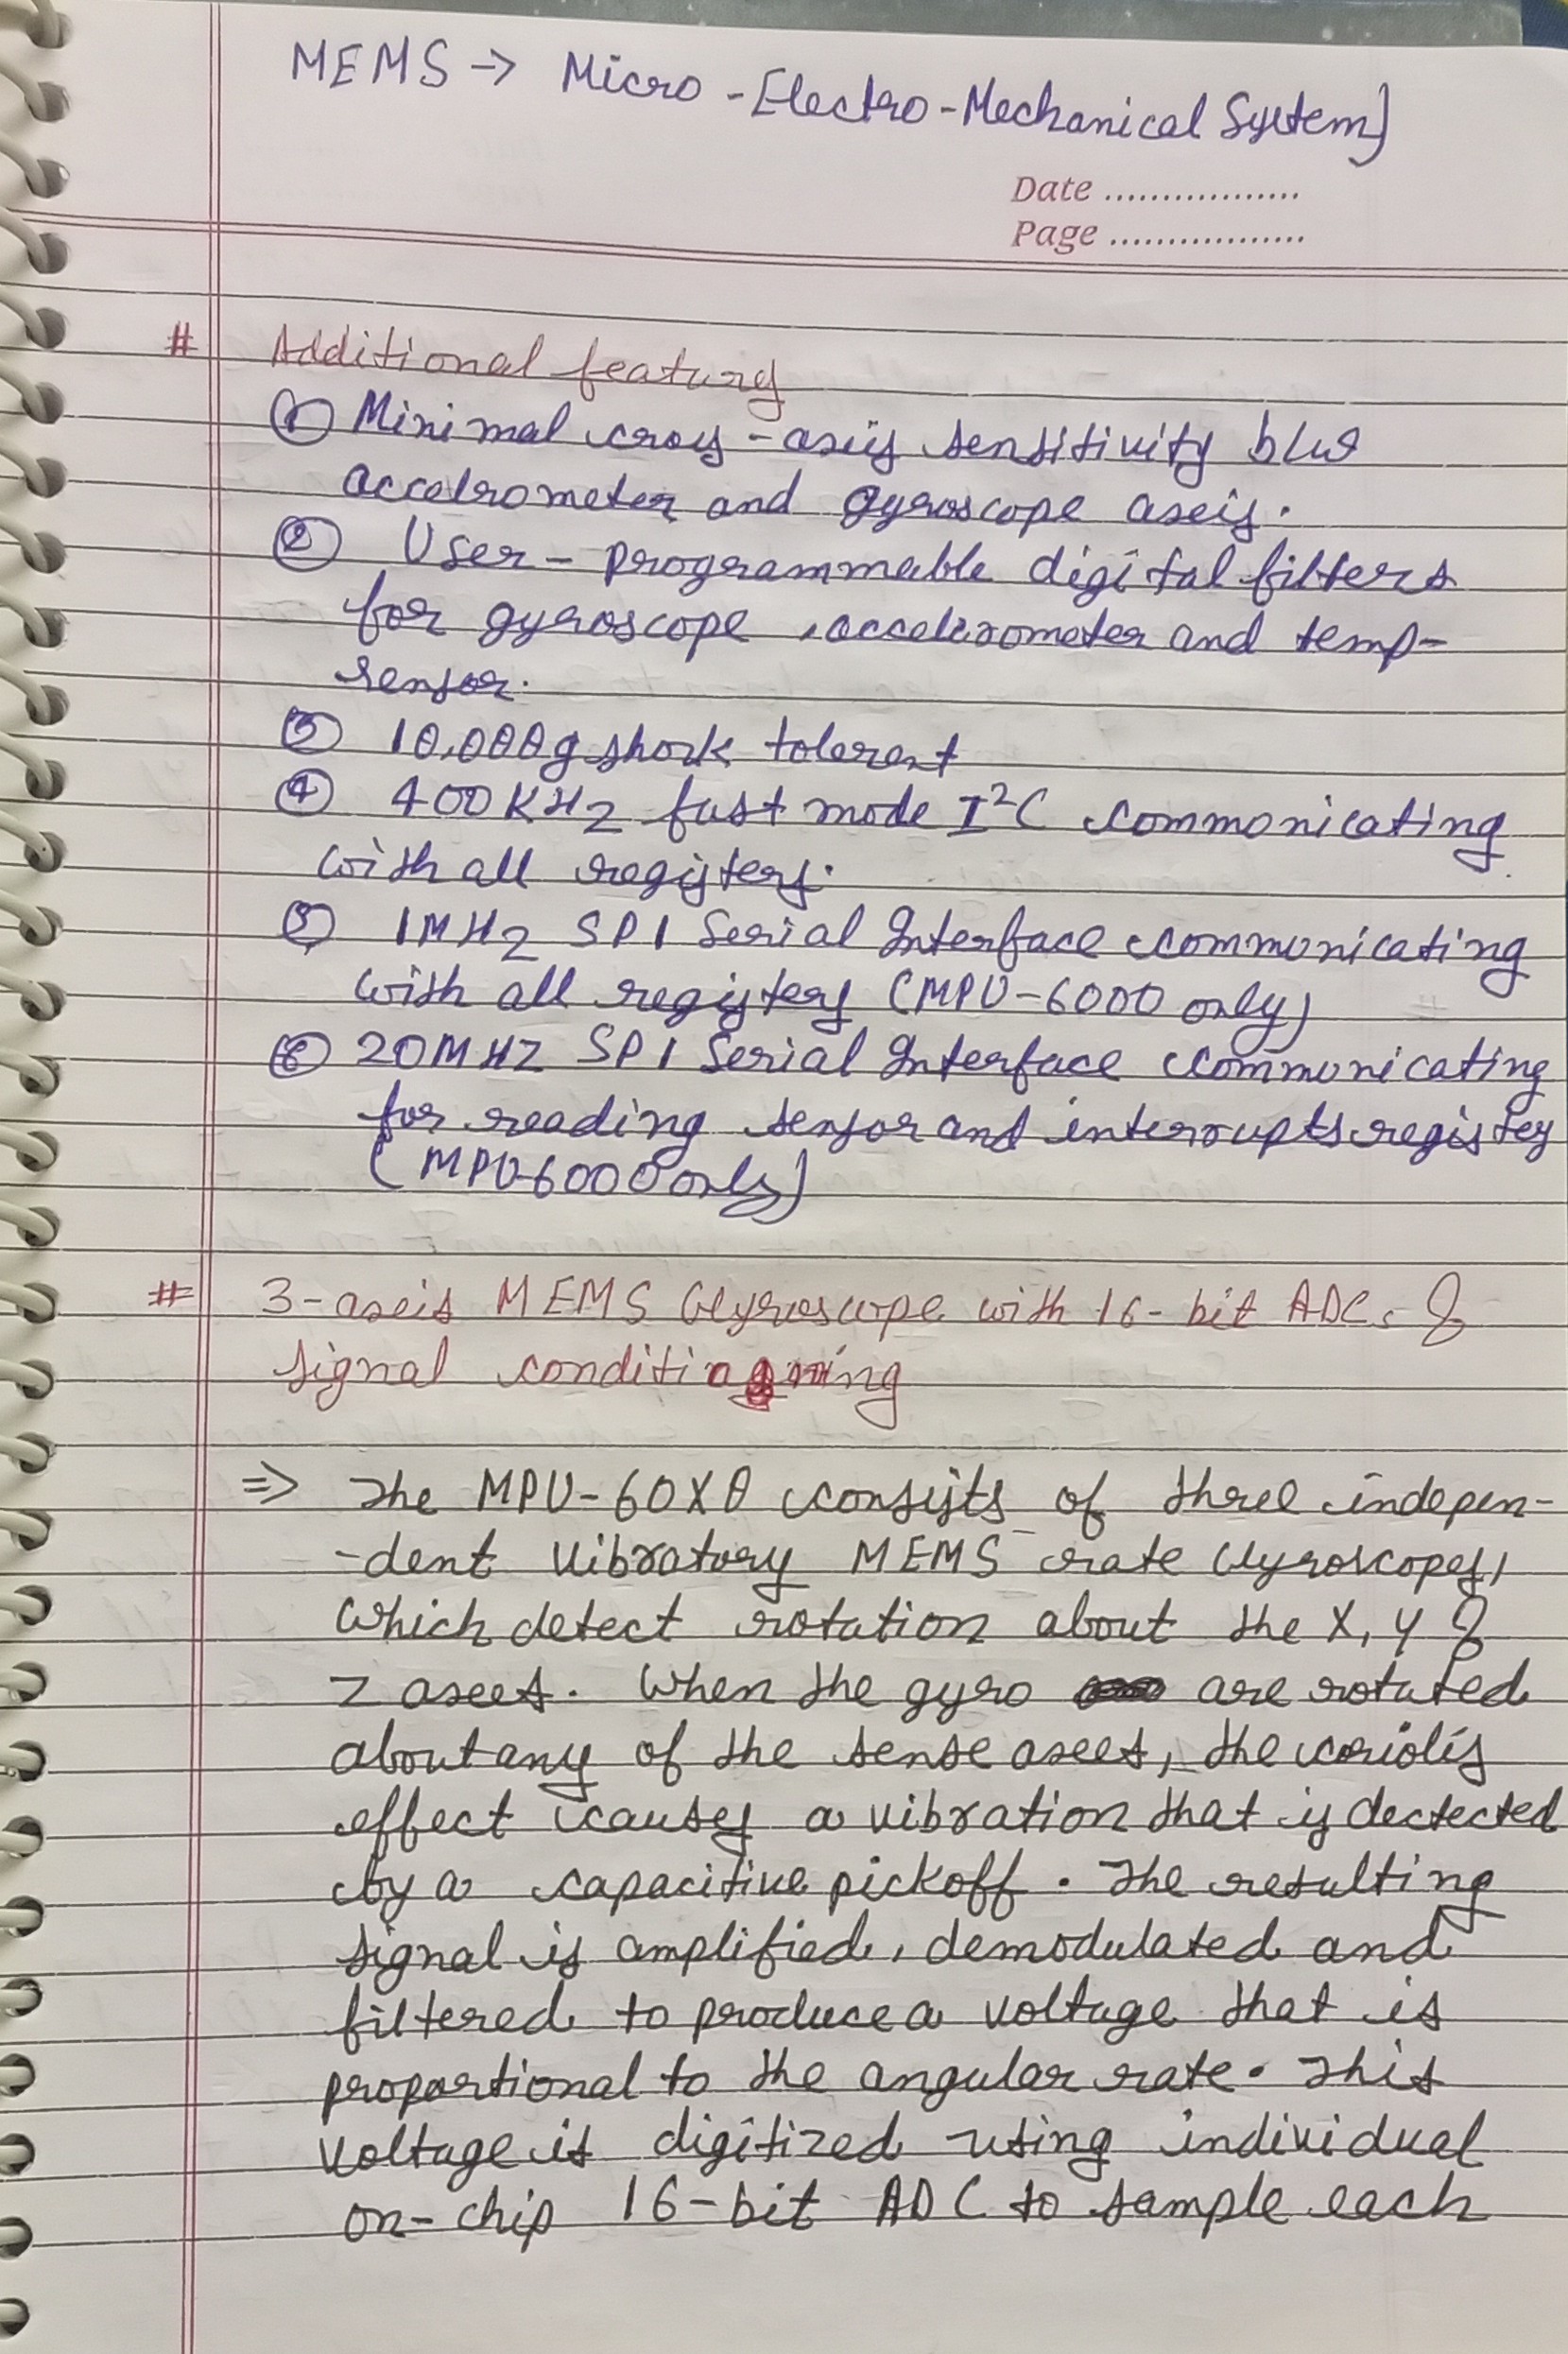 MEMS → Micro-Electro-Mechanical System]
Date ..................
Page ..................
# Additional features
① Minimal cross-axis sensitivity b/w
accelrometer and gyroscope axeis.
② User-programmable digital filters
for gyroscope, accelerometer and temp-
sensor.
③ 10,000g shock tolerent
④ 400KHz fast mode I²C commonicating
with all registers.
⑤ 1MHz SPI Serial Interface communicating
with all registers (MPU-6000 only)
⑥ 20MHz SPI Serial Interface communicating
for reading sensor and interrupts registers
(MPU-6000 only)
# 3-axeis MEMS Gyroscope with 16-bit ADCs &
signal conditioning
⇒ The MPU-60X0 consists of three indepen-
-dent vibratory MEMS rate Gyroscopes,
which detect rotation about the X, Y &
Z axees. When the gyro are rotated
about any of the sense axees, the coriolis
effect causes a vibration that is dectected
by a capacitive pickoff. The resulting
signal is amplified, demodulated and
filtered to produce a voltage that is
proportional to the angular rate. This
voltage is digitized using individual
on-chip 16-bit ADC to sample each